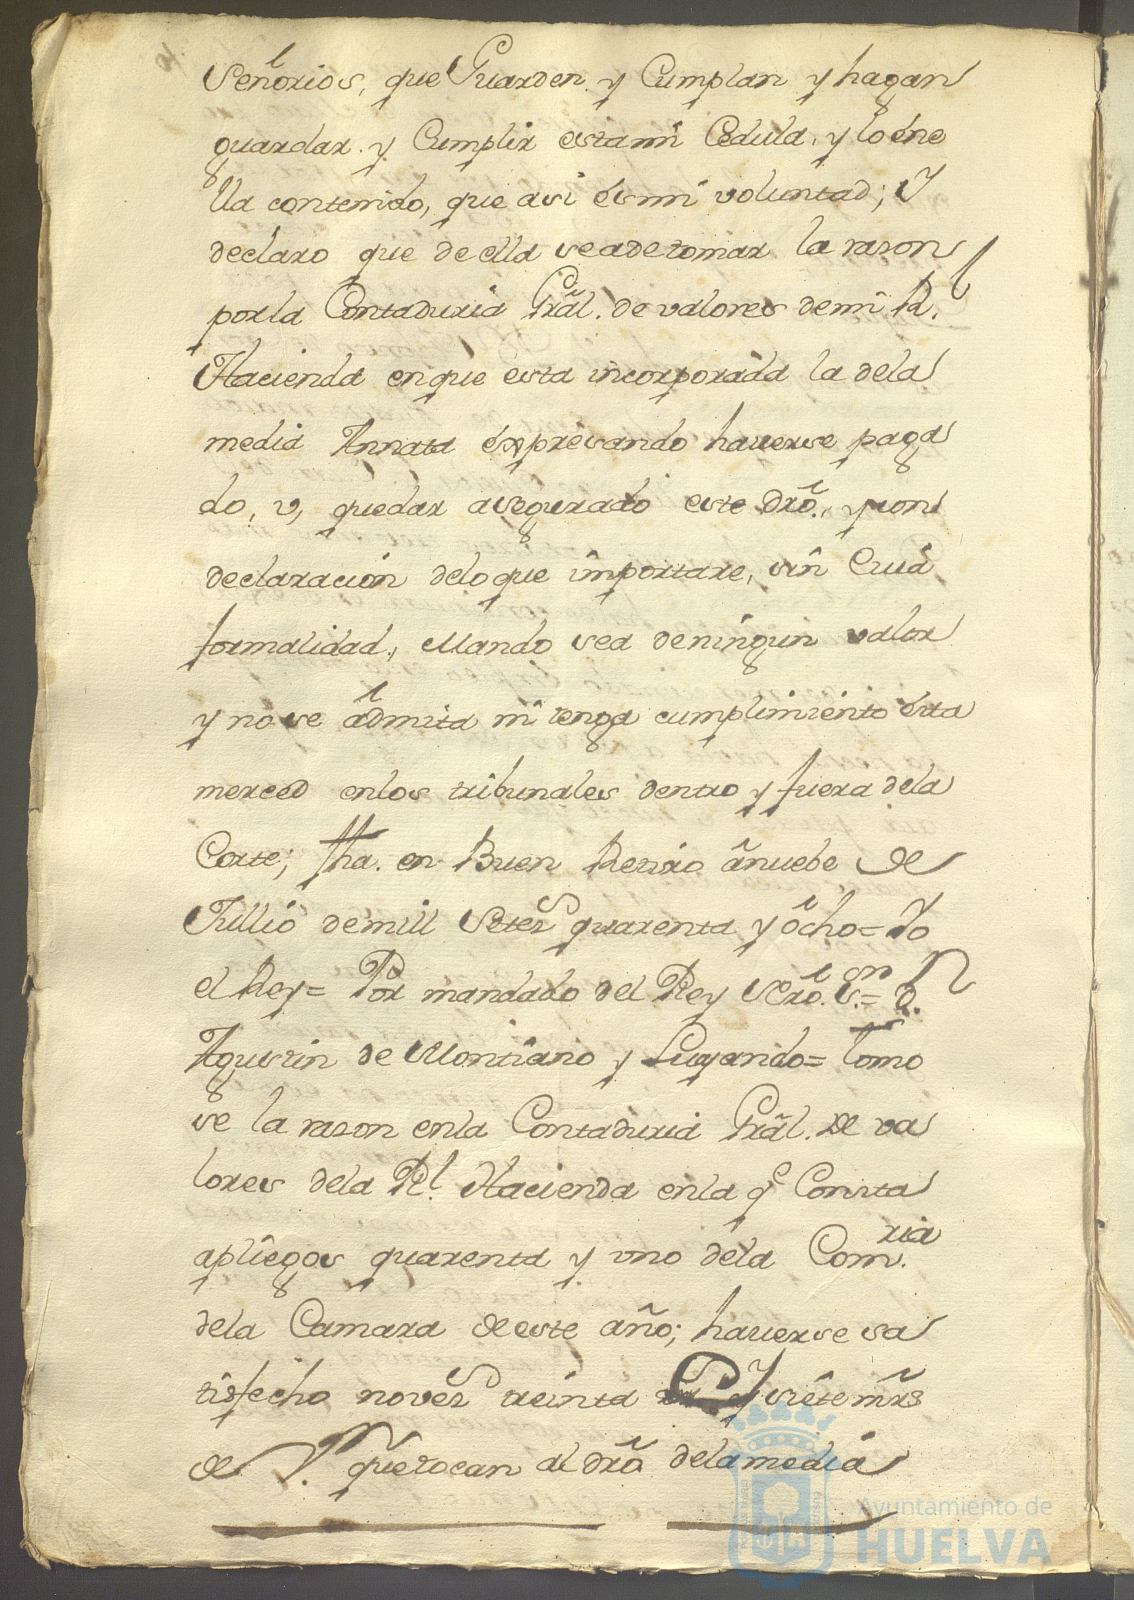 Señorios, que Guarden y Cumplan y hagan
guardar y Cumplir esta mi Cedula, y lo éne
lla contenido, que asi és mi voluntad; Y
declaro que de ella se a de tomar la razon
por la Contaduria Grâl. de valores de mi Rl.
Hacienda en que esta incorporada la de la
media Annata éxpresando hauerse paga
do, v, quedar asegurado este Drô., y con
declaracion de lo que importare, sin Cuia
formalidad, Mando sea de ningun valor
y no se admita ni tenga cumplimiento ésta
merced en los tribunales dentro y fuera de la
Corte; fha. en Buen Retiro à nuebe de
Jullio de mill Setes quarenta y ôcho= Yo
el Rey= Por mandado del Rey nro. Sn.= Dn.
Agustin de Montiano y Luyando= Tomo
se la razon en la Contaduria Grâl. De va
lores de la Rl. Hacienda en la qe Consta
a pliegos quarenta y uno de la Comria.
de la Camara de este año; hauerse sa
tisfecho noves treinta y siete mrs
de Vn. que tocan al drô de la media
Ayuntamiento de
HUELVA